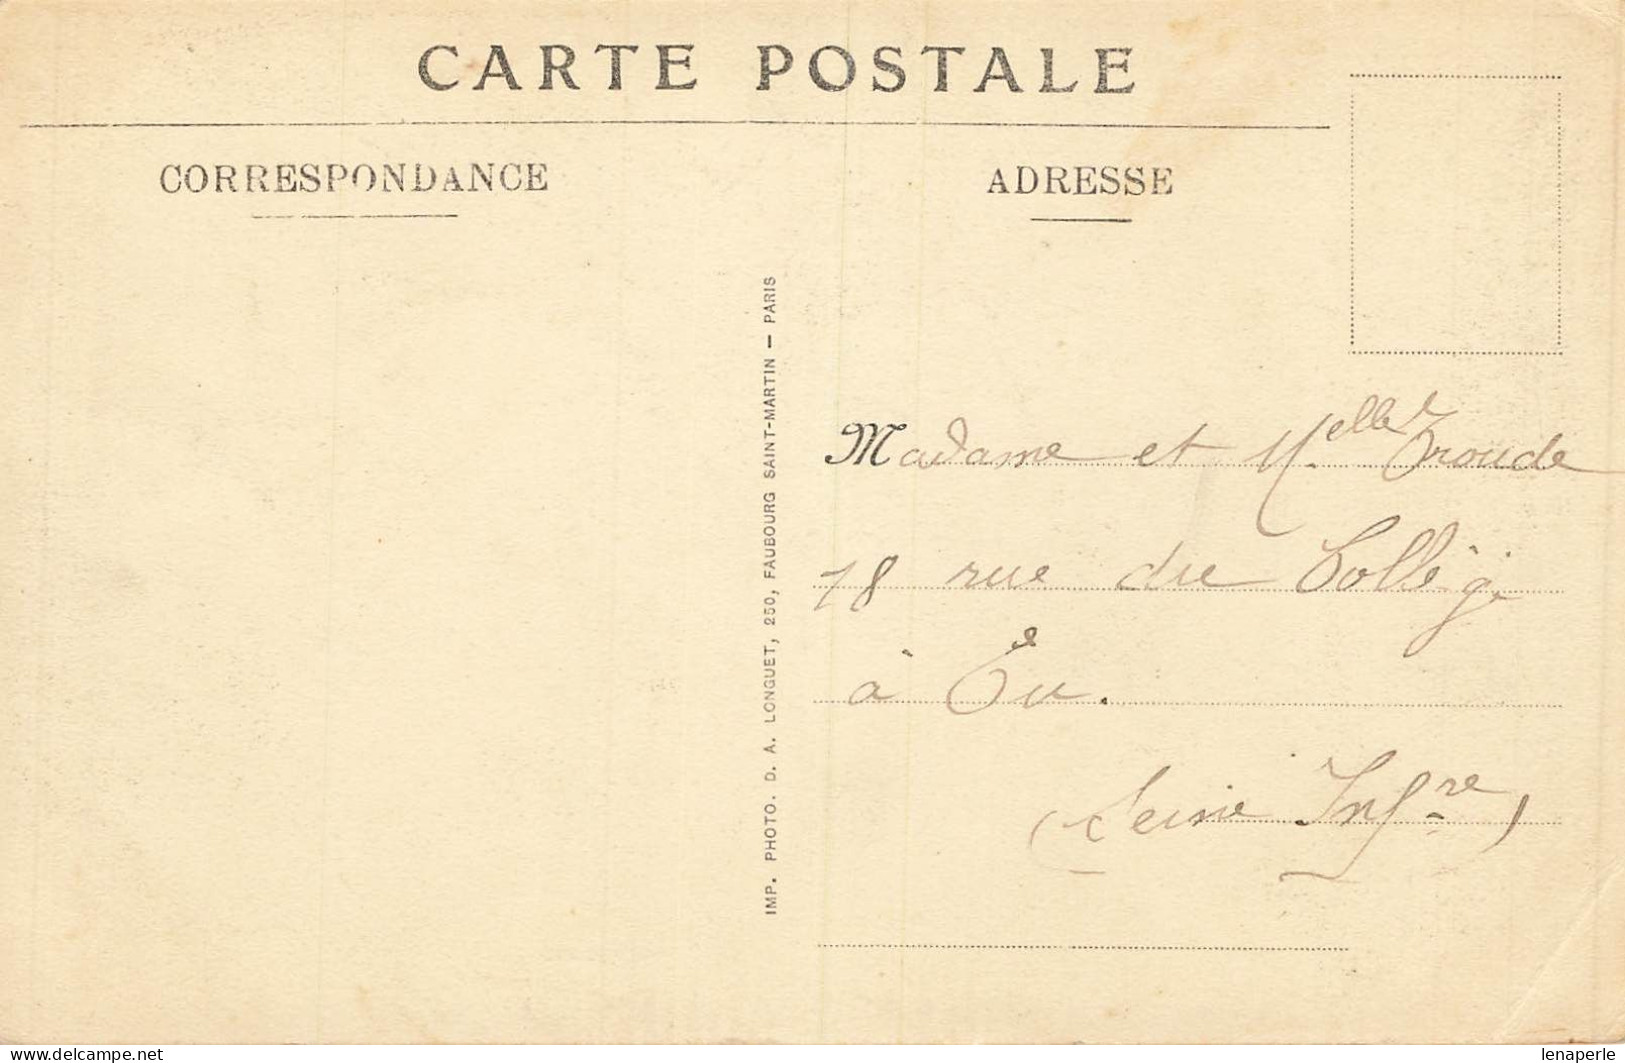 CARTE POSTALE
CORRESPONDANCE
ADRESSE
IMP. PHOTO. D. A. LONGUET, 250, FAUBOURG SAINT-MARTIN — PARIS
Madame et Melle Troude
18 rue du Collège
à Eu.
(Seine Infre)
www.delcampe.net
lenaperle